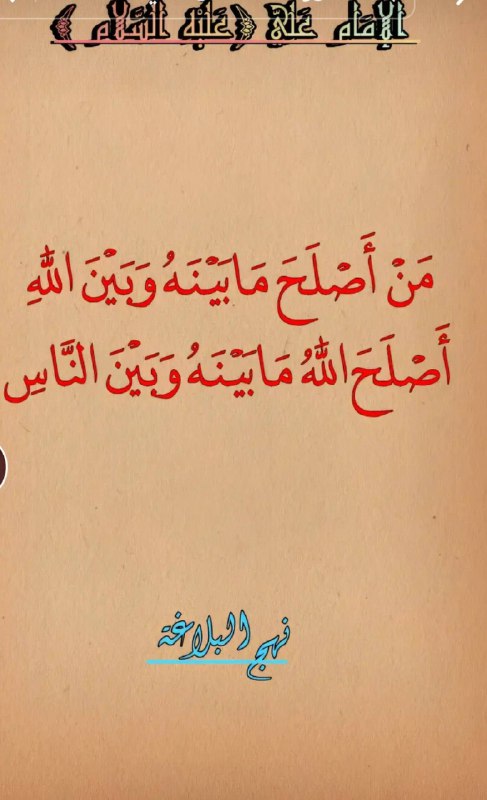 الإمَام عَلي ﴿عَلَيْهِ السَّلَام﴾
مَنْ أَصْلَحَ مَابَيْنَهُ وَبَيْنَ اللّٰهِ
أَصْلَحَ اللّٰهُ مَابَيْنَهُ وَبَيْنَ النَّاسِ
نهج البلاغة